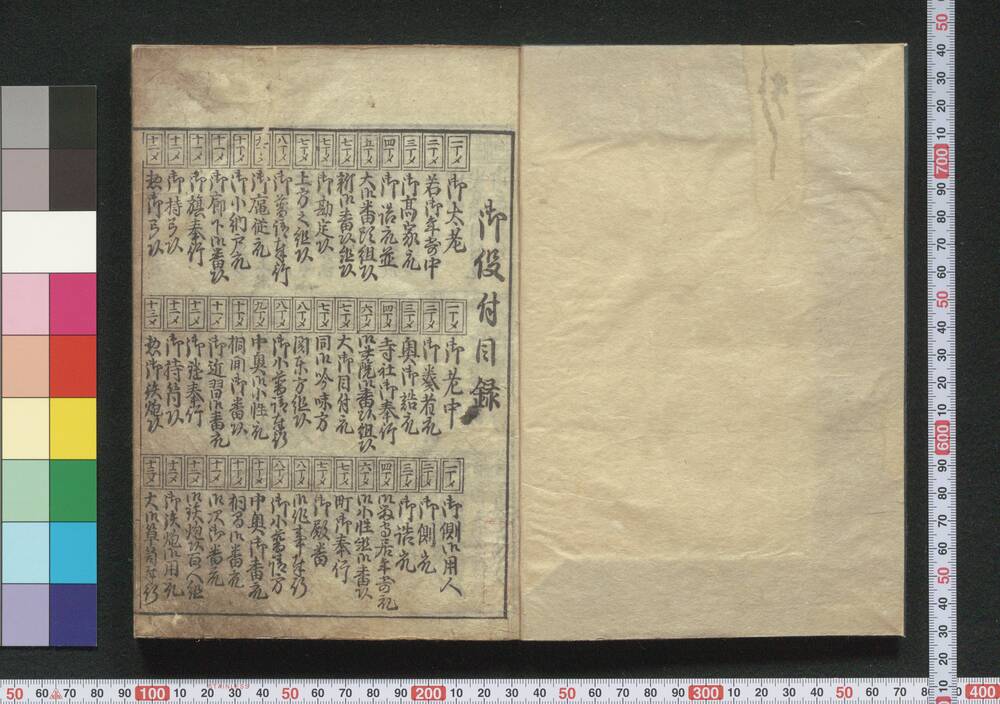 御役付目録
二丁メ 御大老
二丁メ 若御年寄中
三丁メ 御高家衆
四丁メ 御詰衆並
五丁メ 大御番頭組頭
七丁メ 新御番頭組頭
七丁メ 御勘定頭
七丁メ 上方之組頭
八丁メ 御普請奉行
御扈従衆
十丁メ 御小納戸衆
十一丁メ 御廊下御番頭
十一丁メ 御旗奉行
十二丁メ 御持弓頭
十二丁メ 惣御弓頭
二丁メ 御老中
三丁メ 御奏者衆
三丁メ 奥御詰衆
四丁メ 寺社御奉行
六丁メ 御書院御番頭組頭
七丁メ 大御目付衆
七丁メ 同御吟味方
八丁メ 関東方組頭
八丁メ 御小普請奉行
九丁メ 中奥御小性衆
十丁メ 桐間御番頭
十一丁メ 御近習御番衆
十一丁メ 御鑓奉行
十二丁メ 御持筒頭
十三丁メ 惣御鉄炮頭
二丁メ 御側御用人
三丁メ 御側衆
三丁メ 御詰衆
四丁メ 御留守居年寄衆
六丁メ 御小性組御番頭
七丁メ 町御奉行
七丁メ 御殿番
八丁メ 御作事奉行
八丁メ 御小普請方
十丁メ 中奥御番衆
十丁メ 桐間御番衆
十一丁メ 御次御番衆
十一丁メ 御鉄炮頭百人組
十二丁メ 御鉄炮御用衆
十三丁メ 大御草筒奉行